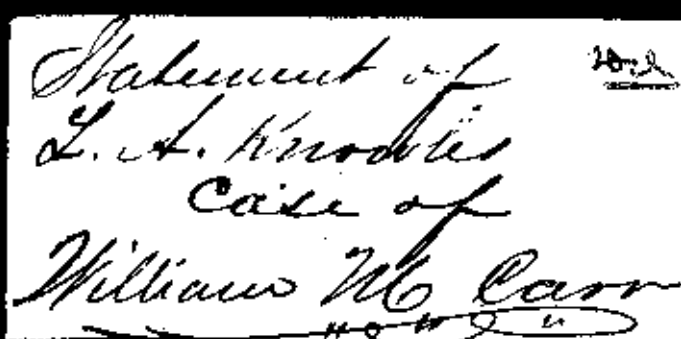 Statement of
L. A. Knowles
Case of
William M Carr